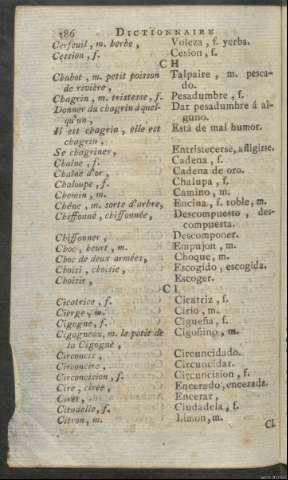 86 DICTIONNAIRE
Cerfeuil, m. herbe, Voleza, f. yerba.
Cession, f. Cesion, f.
CH
Chabot, m. petit poisson Talpaire, m. pesca-
de rivière, do.
Chagrin, m. tristesse, f. Pesadumbre, f.
Donner du chagrin à quel- Dar pesadumbre á al-
qu'un, guno.
Il est chagrin, elle est Está de mal humor.
chagrin,
Se chagriner, Entristecerse, afligirse.
Chaîne, f. Cadena, f.
Chaîne d'or, Cadena de oro.
Chaloupe, f. Chalupa, f.
Chemin, m. Camino, m.
Chêne, m. sorte d'arbre, Encina, f. roble, m.
Chiffonné, chiffonnée, Descompuesto, des-
compuesta.
Chiffonner, Descomponer.
Choc, heurt, m. Empujon, m.
Choc de deux armées, Choque, m.
Choisi, choisie, Escogido, escogida.
Choisir, Escoger.
CI
Cicatrice, f. Cicatriz, f.
Cierge, m. Cirio, m.
Cigogne, f. Cigueña, f.
Cigogneau, m. le petit de m.
la Cigogne,
Circoncis, Circuncidado.
Circoncire, Circuncidar.
Circoncision, f. Circuncision, f.
Cire, cirée, Encerado, encerada.
Cirer, Encerar,
Citadelle, f. Ciudadela, f.
Citron, m. Limon, m.
CI.